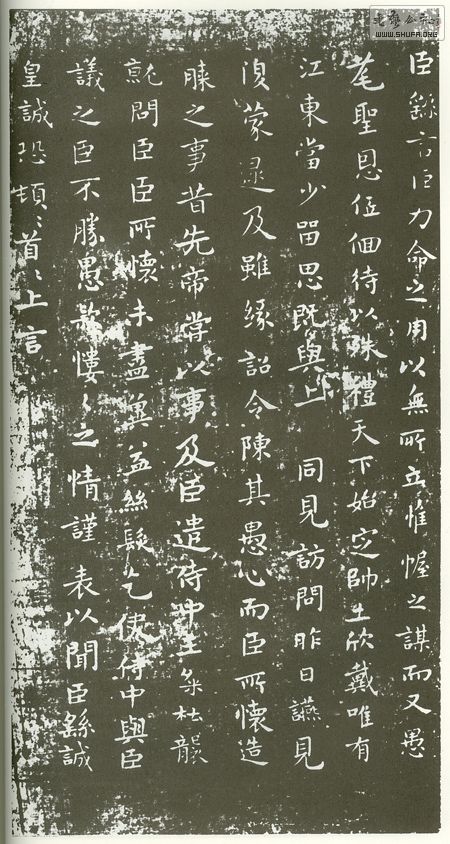 臣繇言臣力命之用以無所立惟幄之謀而又愚
耄聖恩低佪待以殊禮天下始定帥土欣戴唯有
江東當少留思既與上 同見訪問昨日讌見
復蒙逮及雖緣詔令陳其愚心而臣所懷造
膝之事昔先帝嘗以事及臣遣侍中王粲杜襲
就問臣臣所懷未盡冀益絲髮乞使侍中與臣
議之臣不勝愚款慺慺之情謹表以聞臣繇誠
皇誠恐頓頓首首上言
WWW.SHUFA.ORG